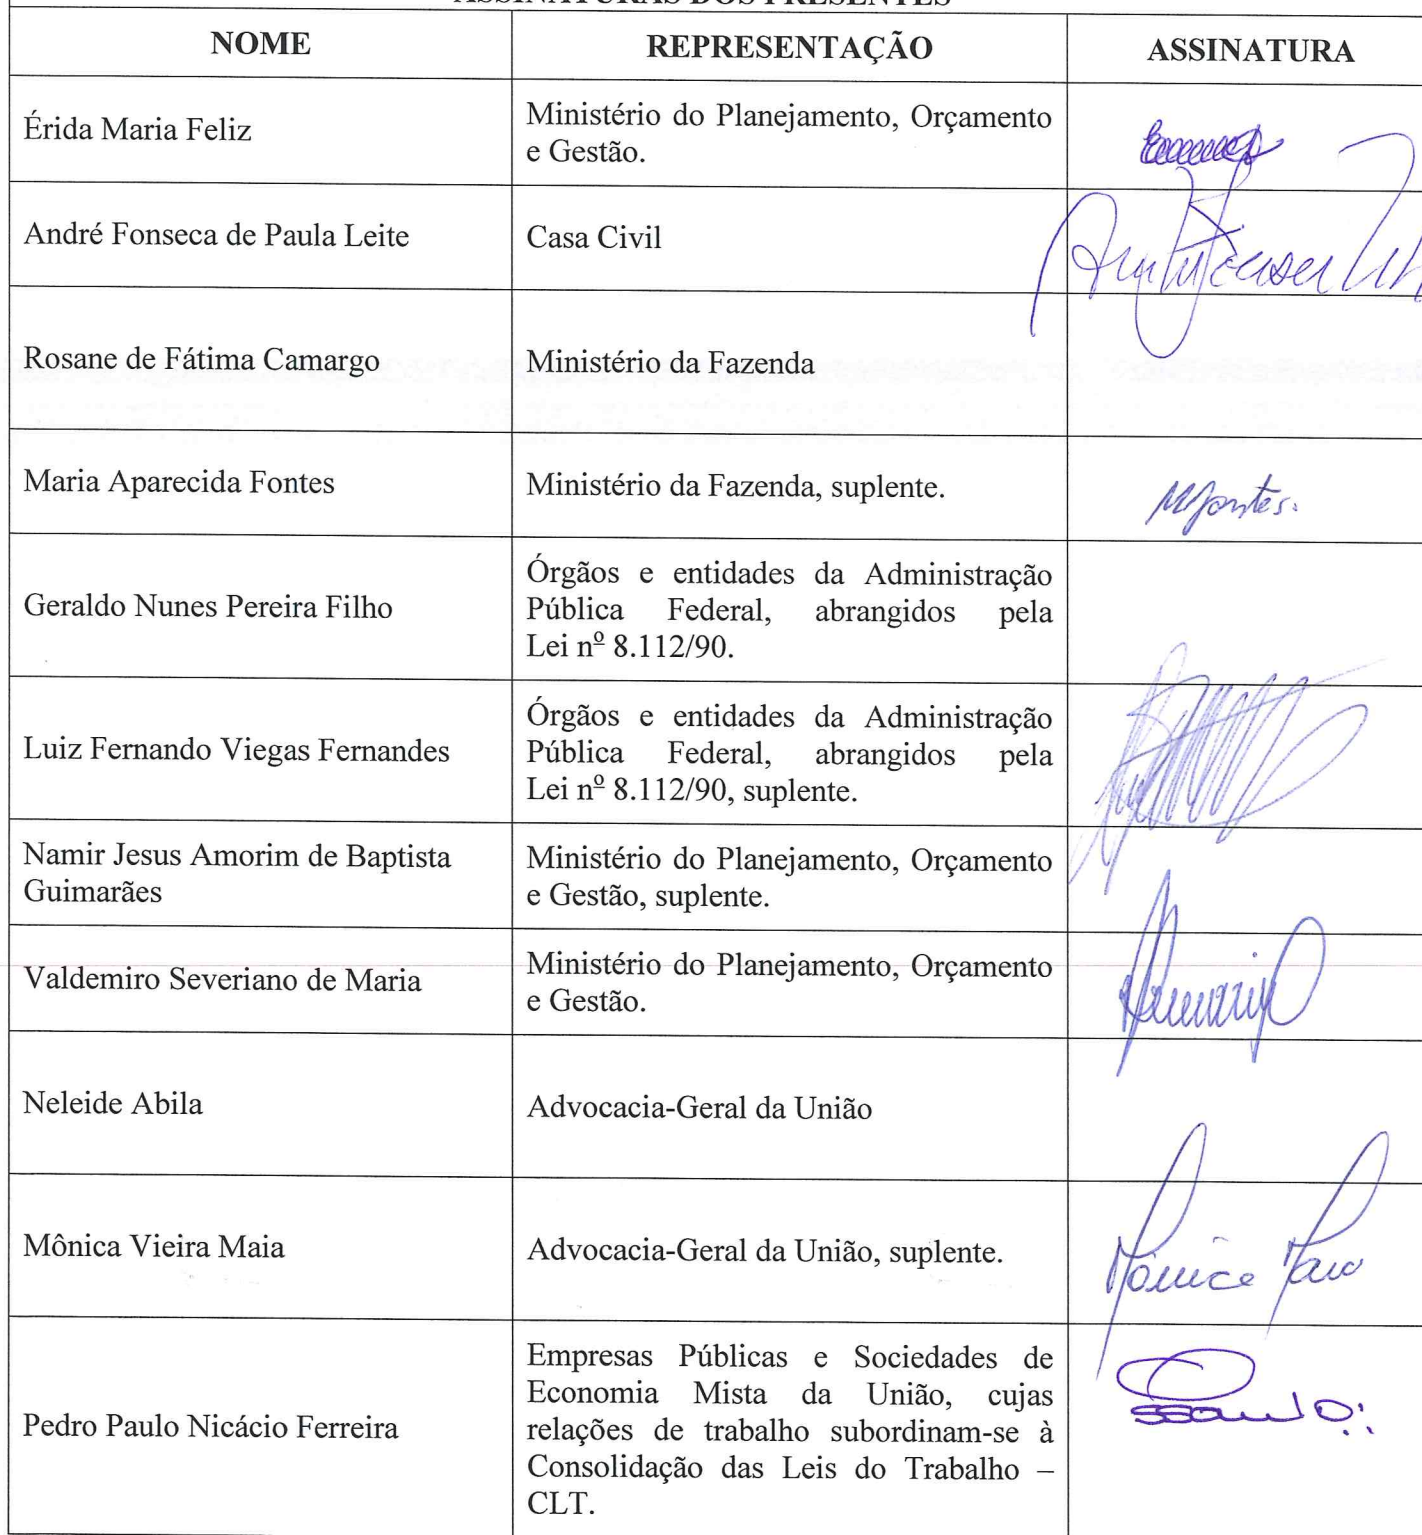 ASSINATURAS DOS PRESENTES
NOME
REPRESENTAÇÃO
ASSINATURA
Érida Maria Feliz
Ministério do Planejamento, Orçamento
e Gestão.
André Fonseca de Paula Leite
Casa Civil
Rosane de Fátima Camargo
Ministério da Fazenda
Maria Aparecida Fontes
Ministério da Fazenda, suplente.
MFontes.
Geraldo Nunes Pereira Filho
Órgãos e entidades da Administração
Pública Federal, abrangidos pela
Lei nº 8.112/90.
Luiz Fernando Viegas Fernandes
Órgãos e entidades da Administração
Pública Federal, abrangidos pela
Lei nº 8.112/90, suplente.
Namir Jesus Amorim de Baptista
Guimarães
Ministério do Planejamento, Orçamento
e Gestão, suplente.
Valdemiro Severiano de Maria
Ministério do Planejamento, Orçamento
e Gestão.
Neleide Abila
Advocacia-Geral da União
Mônica Vieira Maia
Advocacia-Geral da União, suplente.
Mônica Maia
Pedro Paulo Nicácio Ferreira
Empresas Públicas e Sociedades de
Economia Mista da União, cujas
relações de trabalho subordinam-se à
Consolidação das Leis do Trabalho –
CLT.